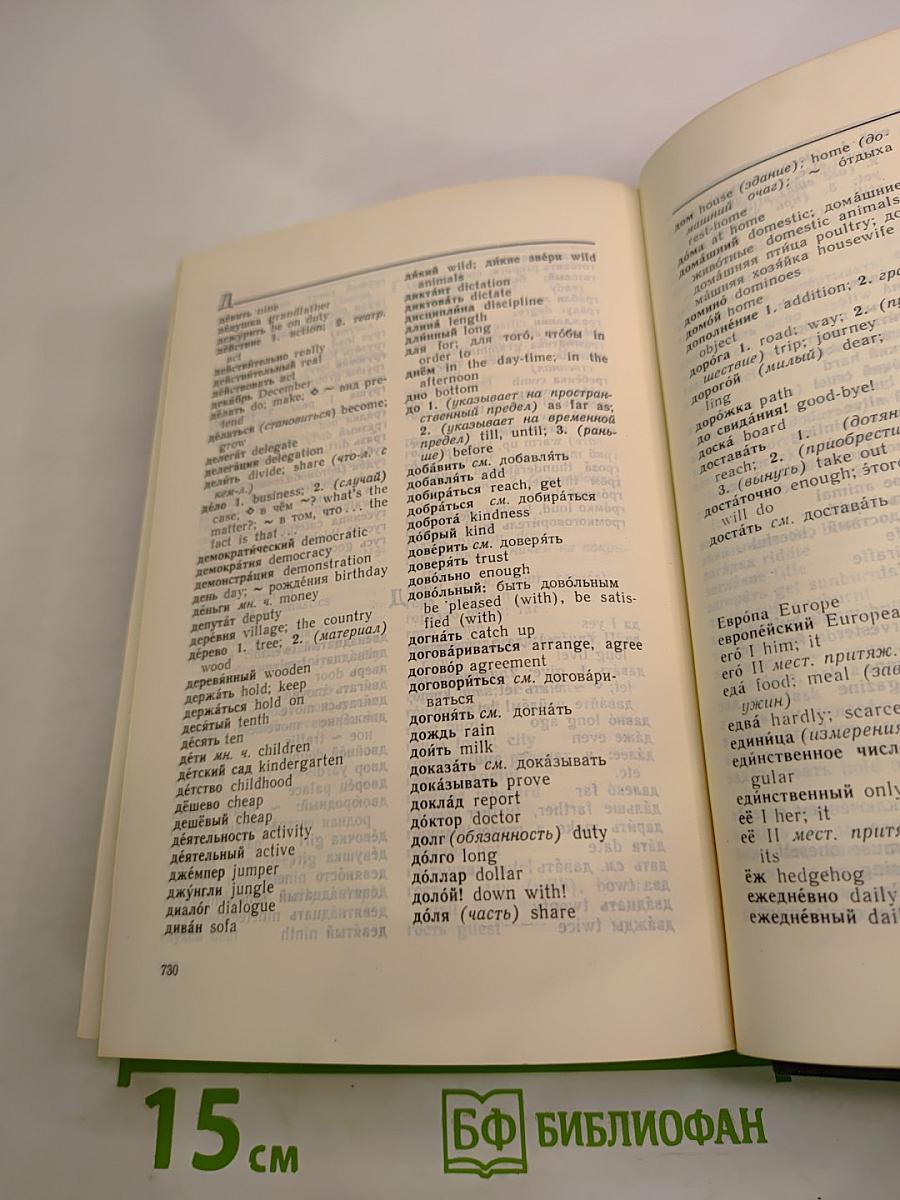 Д
де́вять nine
де́душка grandfather
дежу́рить be on duty
де́йствие 1. action; 2. театр.
act
действи́тельно really
действи́тельный real
де́йствовать act
дека́брь December
де́лать do; make; ◇ ~ вид pre-
tend
де́латься (становиться) become;
grow
делега́т delegate
делега́ция delegation
дели́ть divide; share (что-л. с
кем-л.)
де́ло 1. business; 2. (случай)
case; ◇ в чём ~? what's the
matter?; ~ в том, что ... the
fact is that ...
демократи́ческий democratic
демокра́тия democracy
демонстра́ция demonstration
день day; ~ рожде́ния birthday
де́ньги мн. ч. money
депута́т deputy
дере́вня village; the country
де́рево 1. tree; 2. (материал)
wood
деревя́нный wooden
держа́ть hold; keep
держа́ться hold on
деся́тый tenth
де́сять ten
де́ти мн. ч. children
де́тский сад kindergarten
де́тство childhood
дёшево cheap
дешёвый cheap
де́ятельность activity
де́ятельный active
дже́мпер jumper
джу́нгли jungle
диало́г dialogue
дива́н sofa
ди́кий wild; ди́кие зве́ри wild
animals
дикта́нт dictation
диктова́ть dictate
дисципли́на discipline
длина́ length
дли́нный long
для for; для того́, что́бы in
order to
днём in the day-time; in the
afternoon
дно bottom
до 1. (указывает на простран-
ственный предел) as far as;
2. (указывает на временной
предел) till, until; 3. (рань-
ше) before
доба́вить см. добавля́ть
добавля́ть add
добира́ться reach, get
добра́ться см. добира́ться
доброта́ kindness
до́брый kind
дове́рить см. доверя́ть
доверя́ть trust
дово́льно enough
дово́льный: быть дово́льным
be pleased (with), be satis-
fied (with)
догна́ть catch up
догова́риваться arrange, agree
догово́р agreement
договори́ться см. догова́ри-
ваться
догоня́ть см. догна́ть
дождь rain
дои́ть milk
доказа́ть см. дока́зывать
дока́зывать prove
докла́д report
до́ктор doctor
долг (обязанность) duty
до́лго long
до́ллар dollar
доло́й! down with!
до́ля (часть) share
730
дом house (здание); home (до-
машний очаг); ~ о́тдыха
rest-home
до́ма at home
дома́шний domestic; дома́шние
живо́тные domestic animals
дома́шняя пти́ца poultry; до
ма́шняя хозя́йка housewife
домино́ dominoes
домо́й home
дополне́ние 1. addition; 2. гра
object
доро́га 1. road; way; 2. (пу
шествие) trip; journey
дорого́й (милый) dear;
ling
доро́жка path
до свида́ния! good-bye!
доска́ board
достава́ть 1. (дотян
reach; 2. (приобрести
3. (вынуть) take out
доста́точно enough; э́того
will do
доста́ть см. достава́ть
Евро́па Europe
европе́йский Europea
его́ I him; it
его́ II мест. притяж.
еда́ food; meal (зав
ужин)
едва́ hardly; scarce
едини́ца (измерения
еди́нственное числ
gular
еди́нственный only
её I her; it
её II мест. притя
its
ёж hedgehog
ежедне́вно daily
ежедне́вный dai
15 см
БФ БИБЛИОФАН